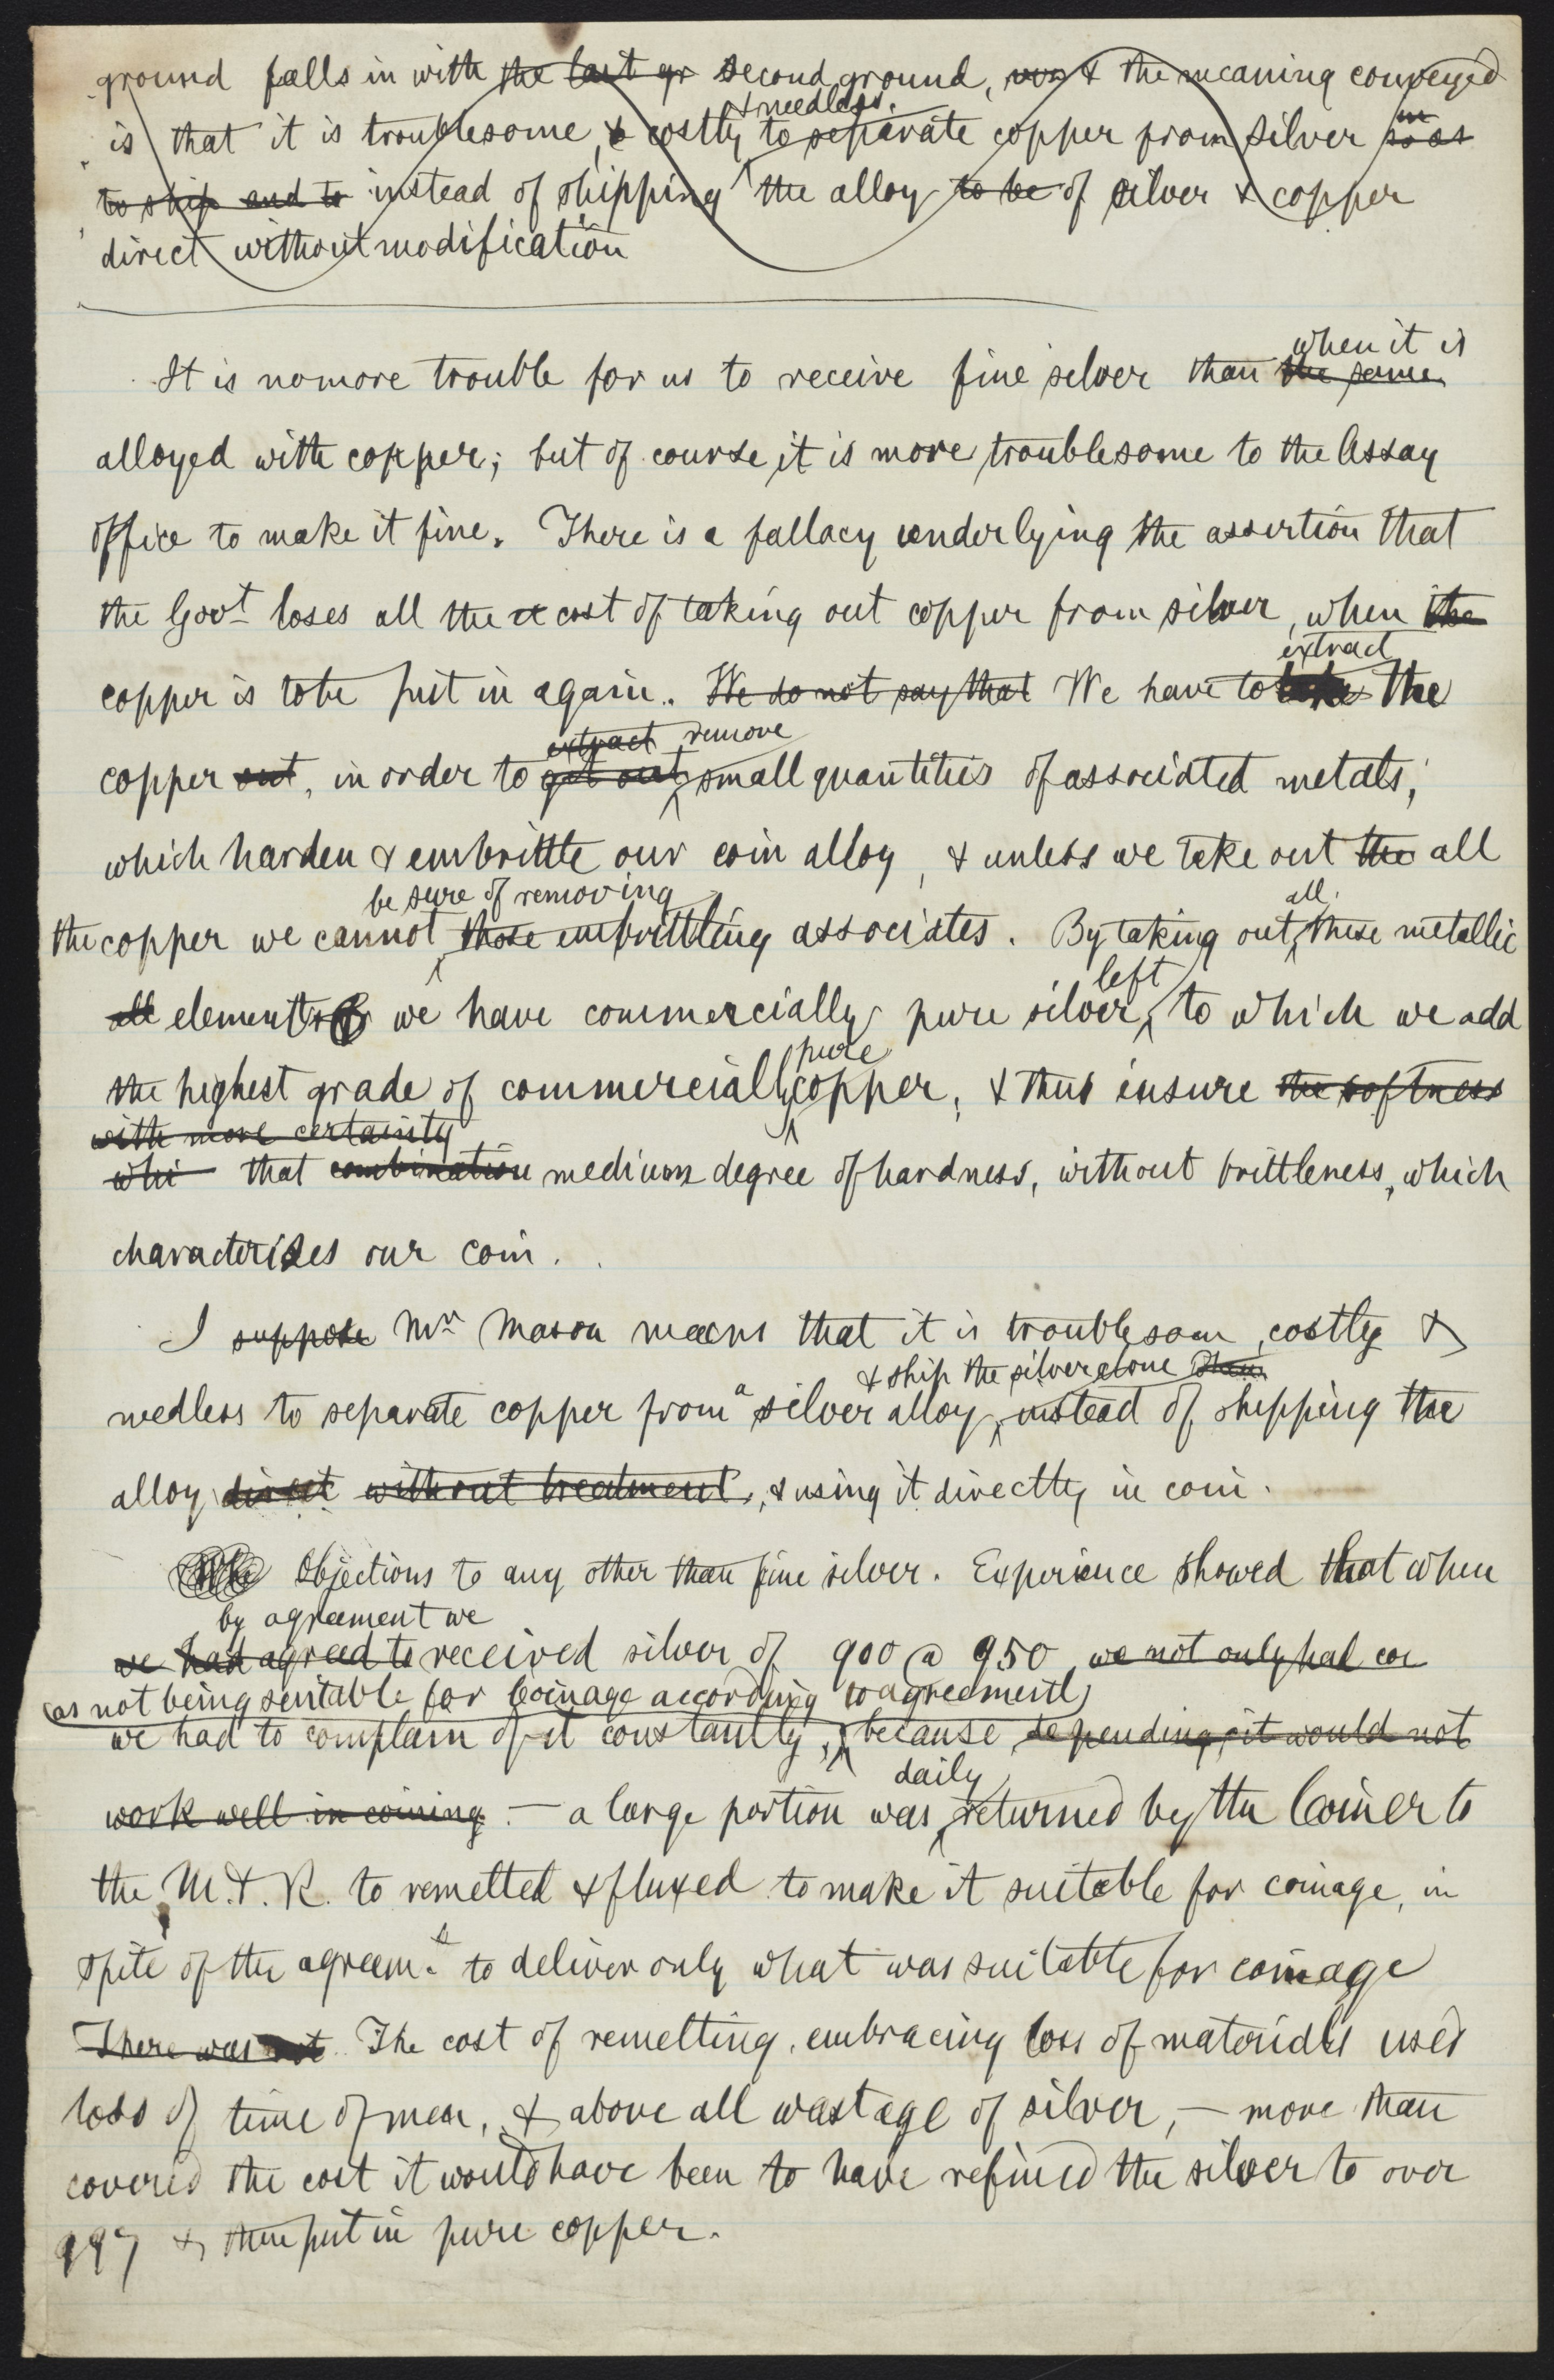 ground falls in with the last gr second ground, & the meaning conveyed
& needless.
is that it is troublesome, & costly to separate copper from silver so as
to ship and to instead of shipping the alloy to be of silver & copper
direct without modification
when it is
It is no more trouble for us to receive fine silver than the same
alloyed with copper; but of course it is more troublesome to the Assay
Office to make it fine. There is a fallacy underlying the assertion that
the Govt loses all the cost of taking out copper from silver, when the
extract
copper is to be put in again. We do not say that We have to take the
extract remove
copper out, in order to get out small quantities of associated metals,
which harden & embrittle our coin alloy, & unless we take out the all
be sure of removing all
the copper we cannot those embrittling associates. By taking out these metallic
left
all elements we have commercially pure silver, to which we add
pure
the highest grade of commercially copper, & thus insure the softness
with more certainty
whi that combination medium degree of hardness, without brittleness, which
characterizes our coin.
I suppose Mr Mason means that it is troublesom, costly &
& ship the silver alone than
nedless to separate copper from a silver alloy, instead of shipping the
alloy direct without treatment, & using it directly in coin.
Objections to any other than fine silver. Experience showed that when
by agreement we
we had agreed to received silver of 900 @ 950, we not only had
(as not being suitable for Coinage according to agreement)
we had to complain of it constantly, because depending, it would not
daily
work well in coining – a large portion was returned by the Coiner to
the M. & R. to remelted & fluxed to make it suitable for coinage, in
spite of the agreemt to deliver only what was suitable for coinage
There was not The cost of remelting, embracing loss of materials used
loss of time of men, & above all wastage of silver, – more than
covered the cost it would have been to have refined the silver to over
997 & then put in pure copper.